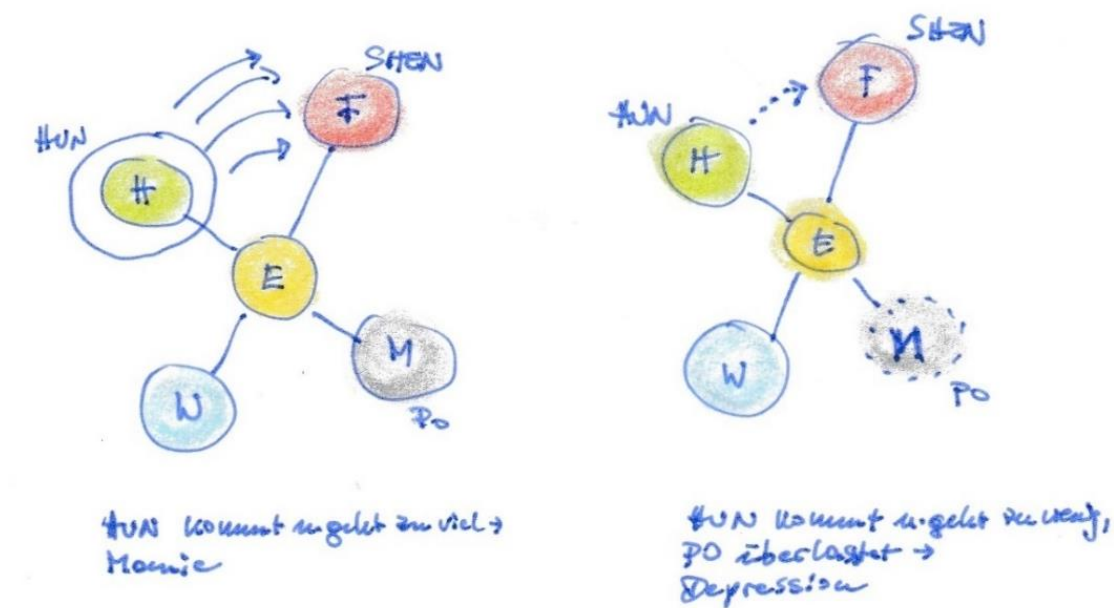 SHEN
F
HUN
H
E
M
W
PO
HUN kommt u. geht zu viel →
Manie
SHEN
F
HUN
H
E
M
W
PO
HUN kommt u. geht zu wenig,
PO überlastet →
Depression